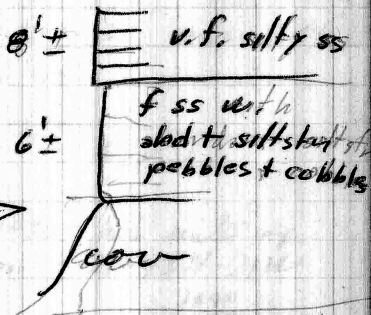 8'± v.f. silty ss
f ss with
6'± abdt siltst
pebbles + cobbles
cov